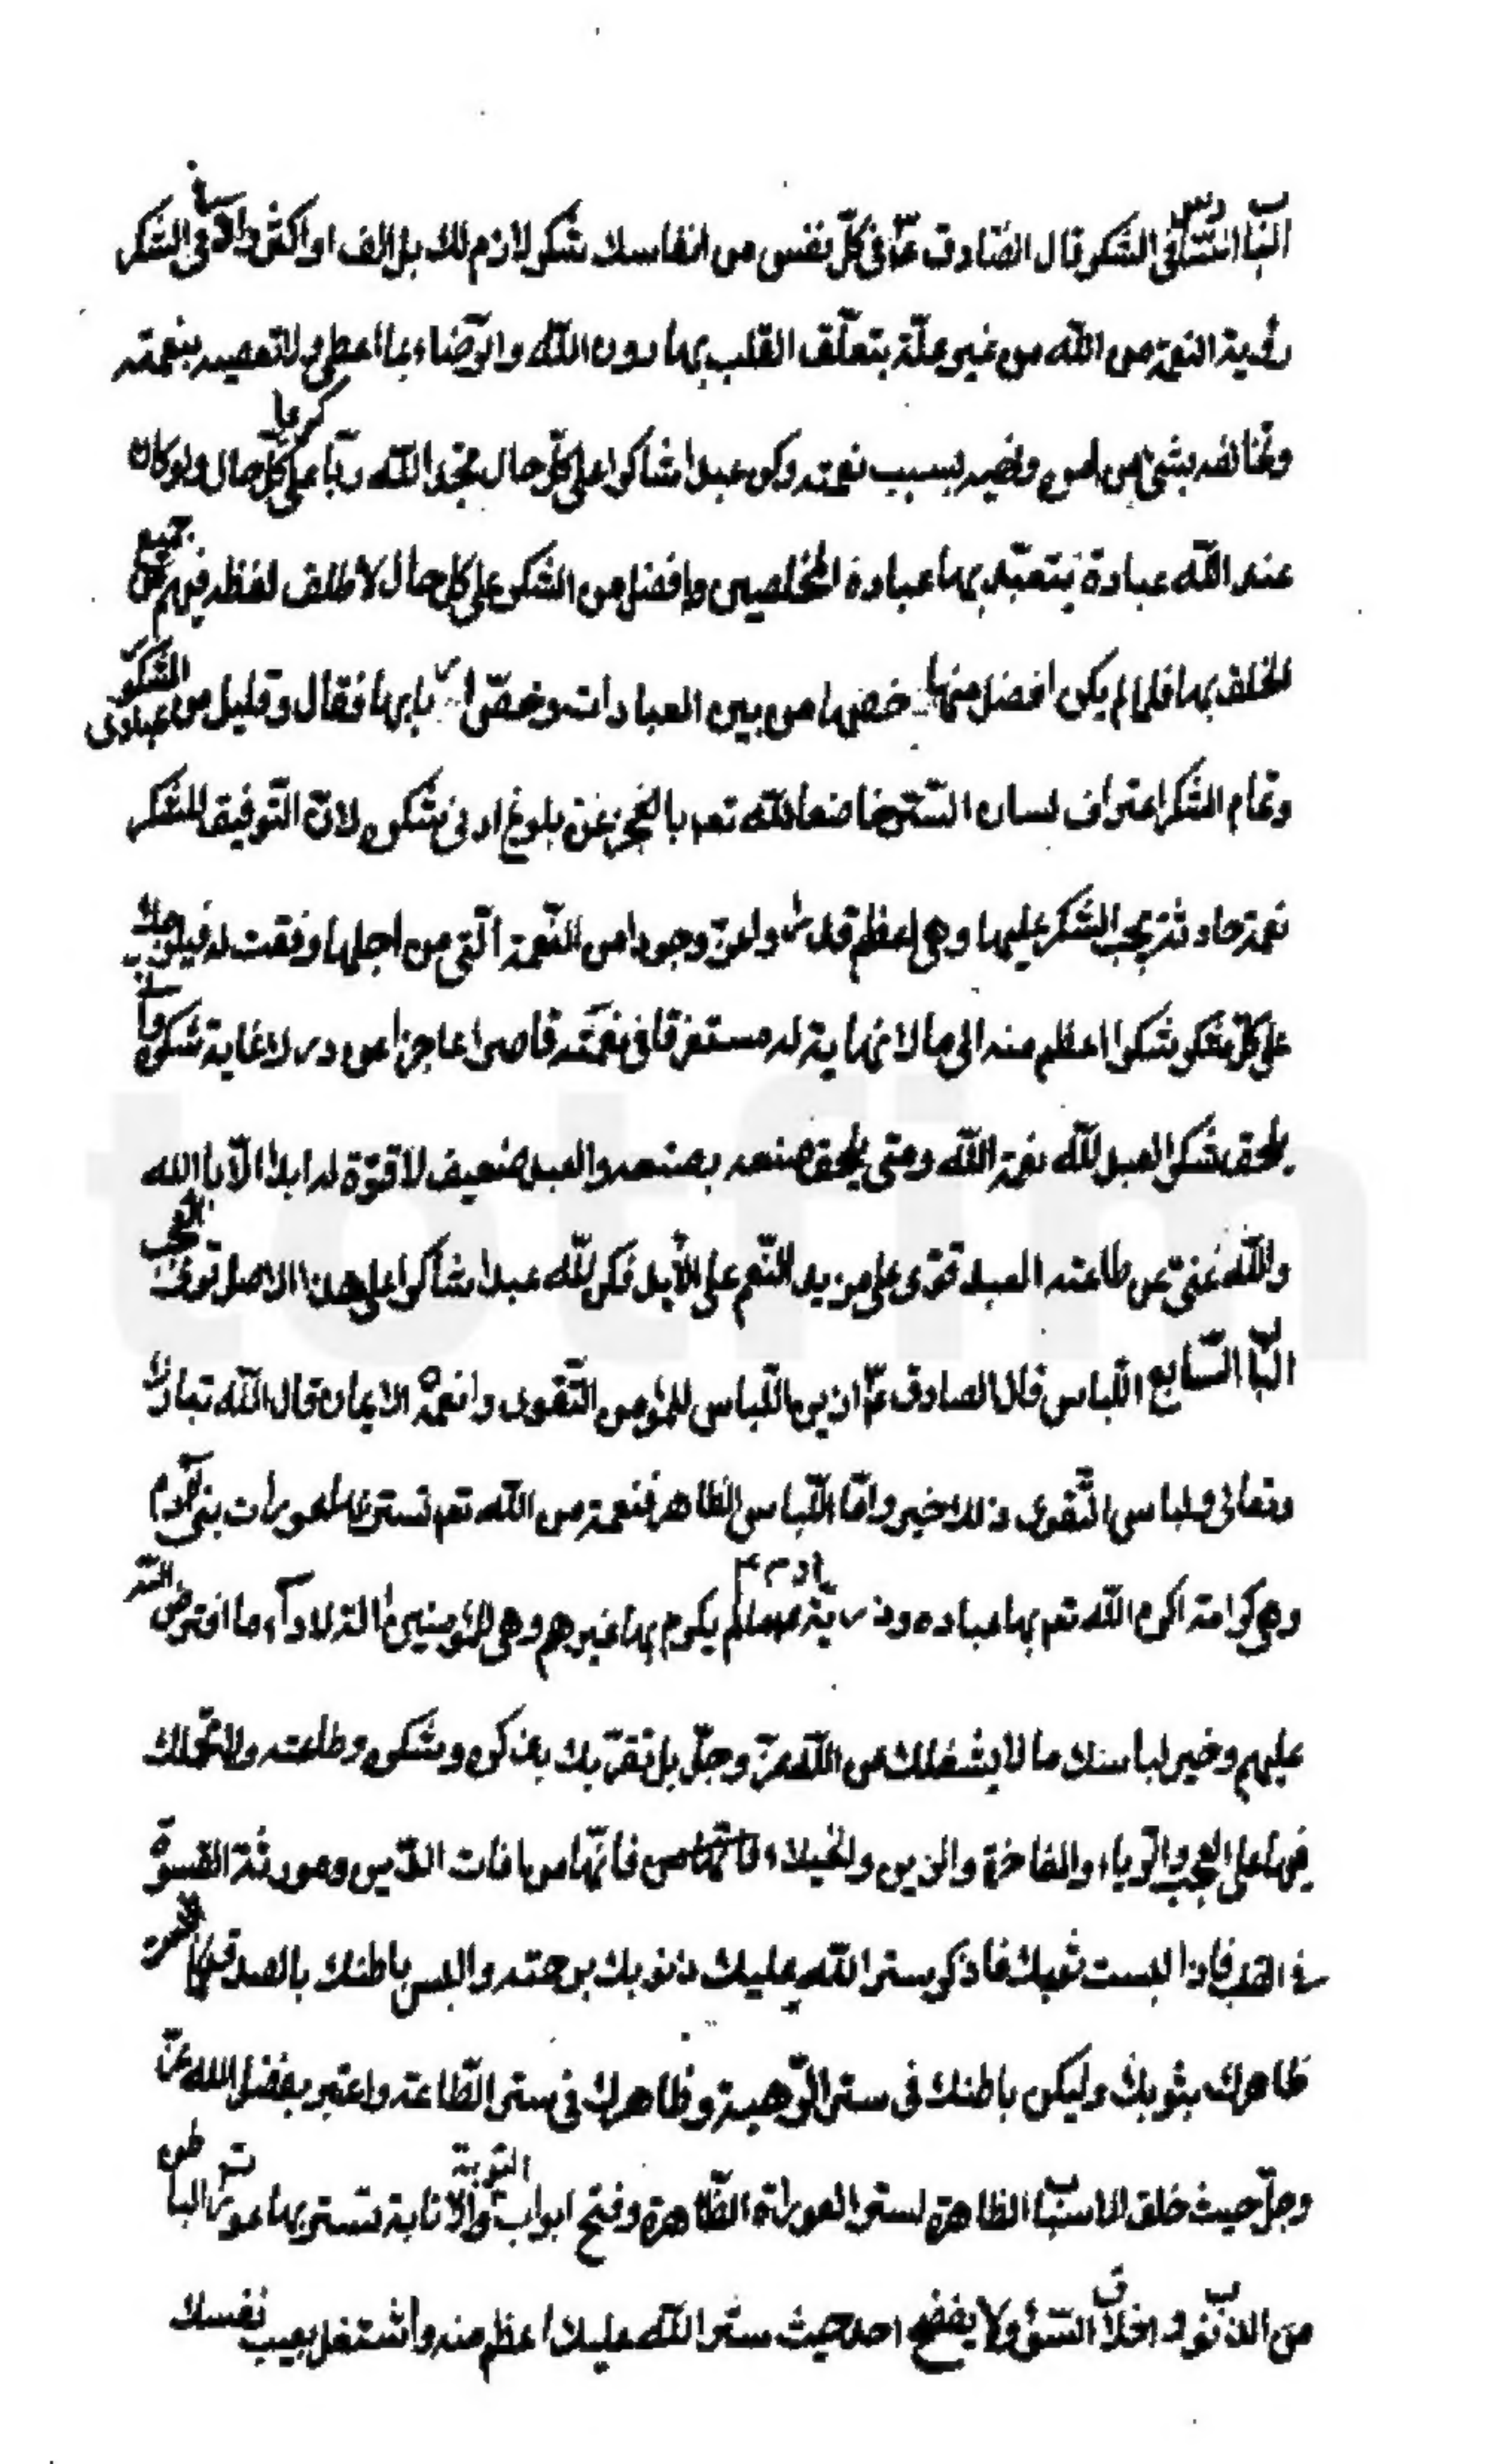 الباب السادس في الشكر قال الصادق ع في كل نفس من انفاسك شكر لازم لك بل الف او اكثر وادنى الشكر
رؤية النعمة من الله من غير علة يتعلق القلب بها دون الله والرضاء بما اعطى ولا تعصيه بنعمته
وتخالفه بشئ من امره ونهيه بسبب نعمته وكن عبدا شاكرا على كل حال تجد الله ربا كريما على كل حال ولو كان
عند الله عبادة يتعبد بها عباده المخلصين افضل من الشكر على كل حال لاطلق لفظه فيهم من جميع
الخلق بها فلما لم يكن افضل منها خصها من بين العبادات وخص اربابها فقال وقليل من عبادى الشكور
وتمام الشكر اعتراف لسان السر خاضعا لله تعه بالعجز عن بلوغ ادنى شكره لان التوفيق للشكر
نعمة حادثة يجب الشكر عليها وهى اعظم قدرا واعز وجودا من النعمة التى من اجلها وفقت له فيلزمك
على كل شكر شكرا اعظم منه الى ما لا نهاية له مستغرقا فى نعمته قاصرا عاجزا عن درك غاية شكره وانى
يلحق شكر العبد لله نعمة الله ومتى يلحق صنعه بصنعه والعبد ضعيف لا قوة له ابدا الا بالله
والله غنى عن طاعته العبد قوى على مزيد النعم على الابد فكن لله عبدا شاكرا على هذا الاصل ترى العجب
الباب السابع اللباس قال الصادق ع ازين اللباس للمؤمن التقوى وانعمه الايمان قال الله تبارك
وتعالى ولباس التقوى ذلك خير واما اللباس الظاهر فنعمة من الله تعه تستر بها عورات بنى آدم
وهى كرامة اكرم الله تعه بها عباده وذرية آدم ع لم يكرم بها غيرهم وهى للمؤمنين آلة لاداء ما افترض الله
عليهم وخير لباسك ما لا يشغلك عن الله عز وجل بل تقربك بذكره وشكره وطاعته ولا تحملك
فيها على العجب والرياء والمفاخرة والتزين والخيلاء فانها من افات الدين ومورثة القسوة
فى القلب فاذا لبست ثوبك فاذكر ستر الله عليك ذنوبك برحمته والبس باطنك بالصدق كما البست
ظاهرك بثوبك وليكن باطنك فى ستر الرهبة وظاهرك فى ستر الطاعة واعتبر بفضل الله عز
وجل حيث خلق الاسباب الظاهرة لستر العورات الظاهرة وفتح ابواب التوبة والانابة تستر بها عورات الباطن
من الذنوب واخلاق السؤ ولا يفضح احد حيث ستر الله عليك اعظم منه واشتغل بعيب نفسك
totfim